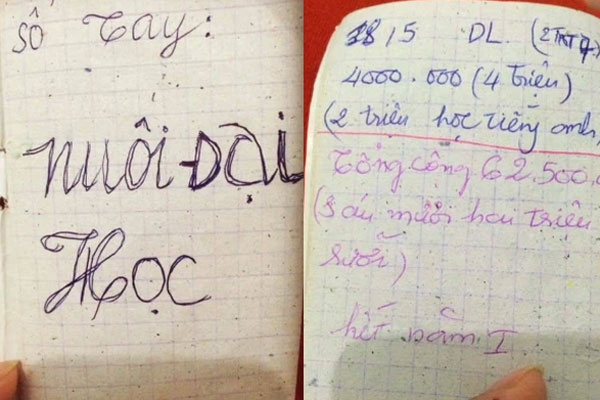 Sổ tay:
NUÔI ĐẠI
HỌC
15 DL. (2
4000.000 (4 triệu)
(2 triệu học tiếng anh
Tổng cộng 62.500.
(Sáu mươi hai triệu
rưỡi)
hết năm I